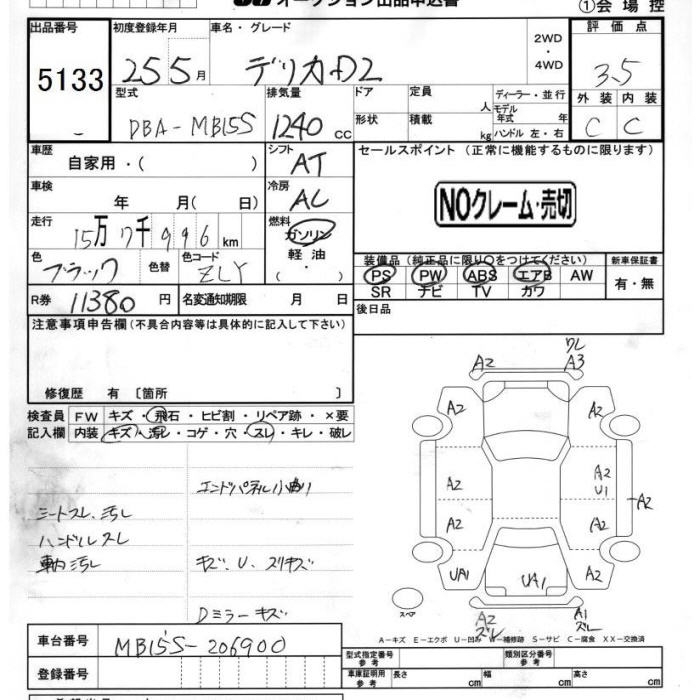 オークション出品申込書
①会場控
出品番号 初度登録年月 車名・グレード 評価点
5133 25 5月 デリカD2 2WD ・4WD 3.5
型式 排気量 ドア 定員 人 ディーラー・並行 外装 内装
DBA-MB15S 1240 cc 形状 積載 kg モデル年式 年 ハンドル 左・右 C C
車歴 シフト セールスポイント (正常に機能するものに限ります)
自家用・( ) AT
車検 冷房 NOクレーム・売切
年 月( 日) AC
走行 燃料
15万 7千 996 km ガソリン
色 色替 色コード 軽油 装備品 (純正品に限り○をつけてください) 新車保証書
ブラック ZLY ・( ) PS PW ABS エアB AW 有・無
SR ナビ TV カワ
R券 11380円 名変通知期限 月 日
後日品
注意事項申告欄 (不具合内容等は具体的に記入して下さい)
ワレ
A2 A3
修復歴 有 〔箇所 〕
A2 A2
検査員 FW キズ・飛石・ヒビ割・リペア跡・×要
記入欄 内装 キズ・汚し・コゲ・穴・スレ・キレ・破し
エンドパネル小曲り
A2 A2 U1 A2
シートスレ、汚し
A2 A2
ハンドルスレ
車内汚し キズ、U、スリキズ
UA1 UA1 A2
Dミラーキズ
スペア
A2 スレ A1 スレ
A-キズ E-エクボ U-凹み W-補修跡 S-サビ C-腐食 XX-交換済
車台番号 MB15S-206900
型式指定番号 参考 類別区分番号 参考
登録番号
車庫証明用 参考 長さ cm 幅 cm 高さ cm